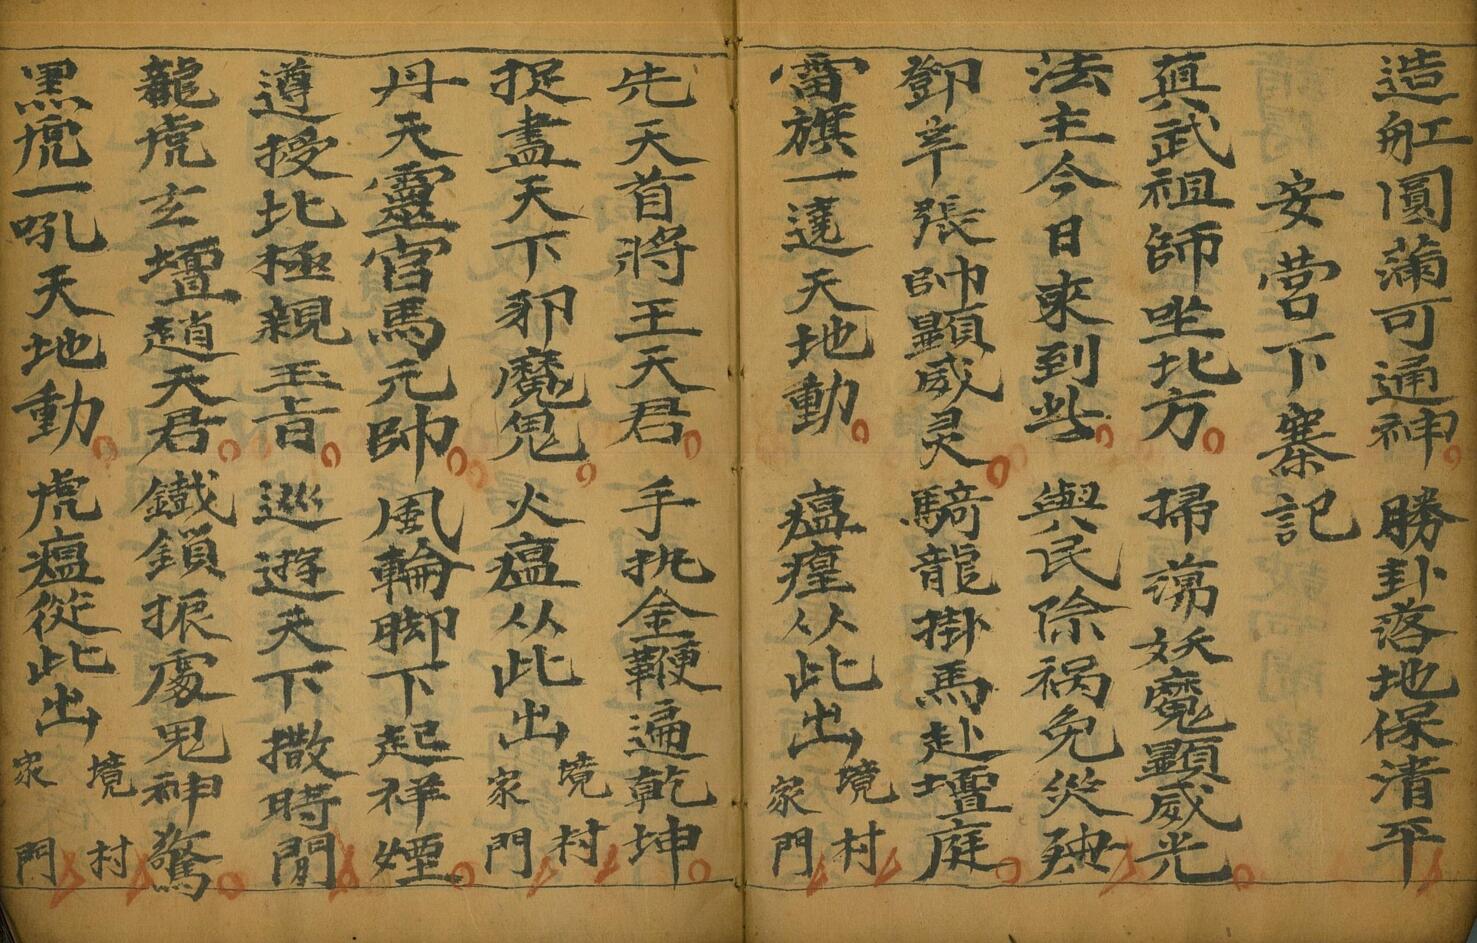 造舡圓滿可通神 勝卦落地保清平
安營下寨記
真武祖師坐北方 掃蕩妖魔顯威光
法主今日來到此 與民除禍免災殃
鄧辛張帥顯威灵 騎龍掛馬赴壇庭
雷旗一遶天地動 瘟㾮从此出境村家門
先天首將王天君 手执金鞭遍乾坤
捉盡天下邪魔鬼 火瘟从此出境村家門
丹天靈官馬元帥 風輪脚下起祥煙
遵授北極親玉旨 巡遊天下撒時閒
龍虎玄壇趙天君 鐵鎖振處鬼神驚
黑虎一吼天地動 虎瘟從此出境村家門